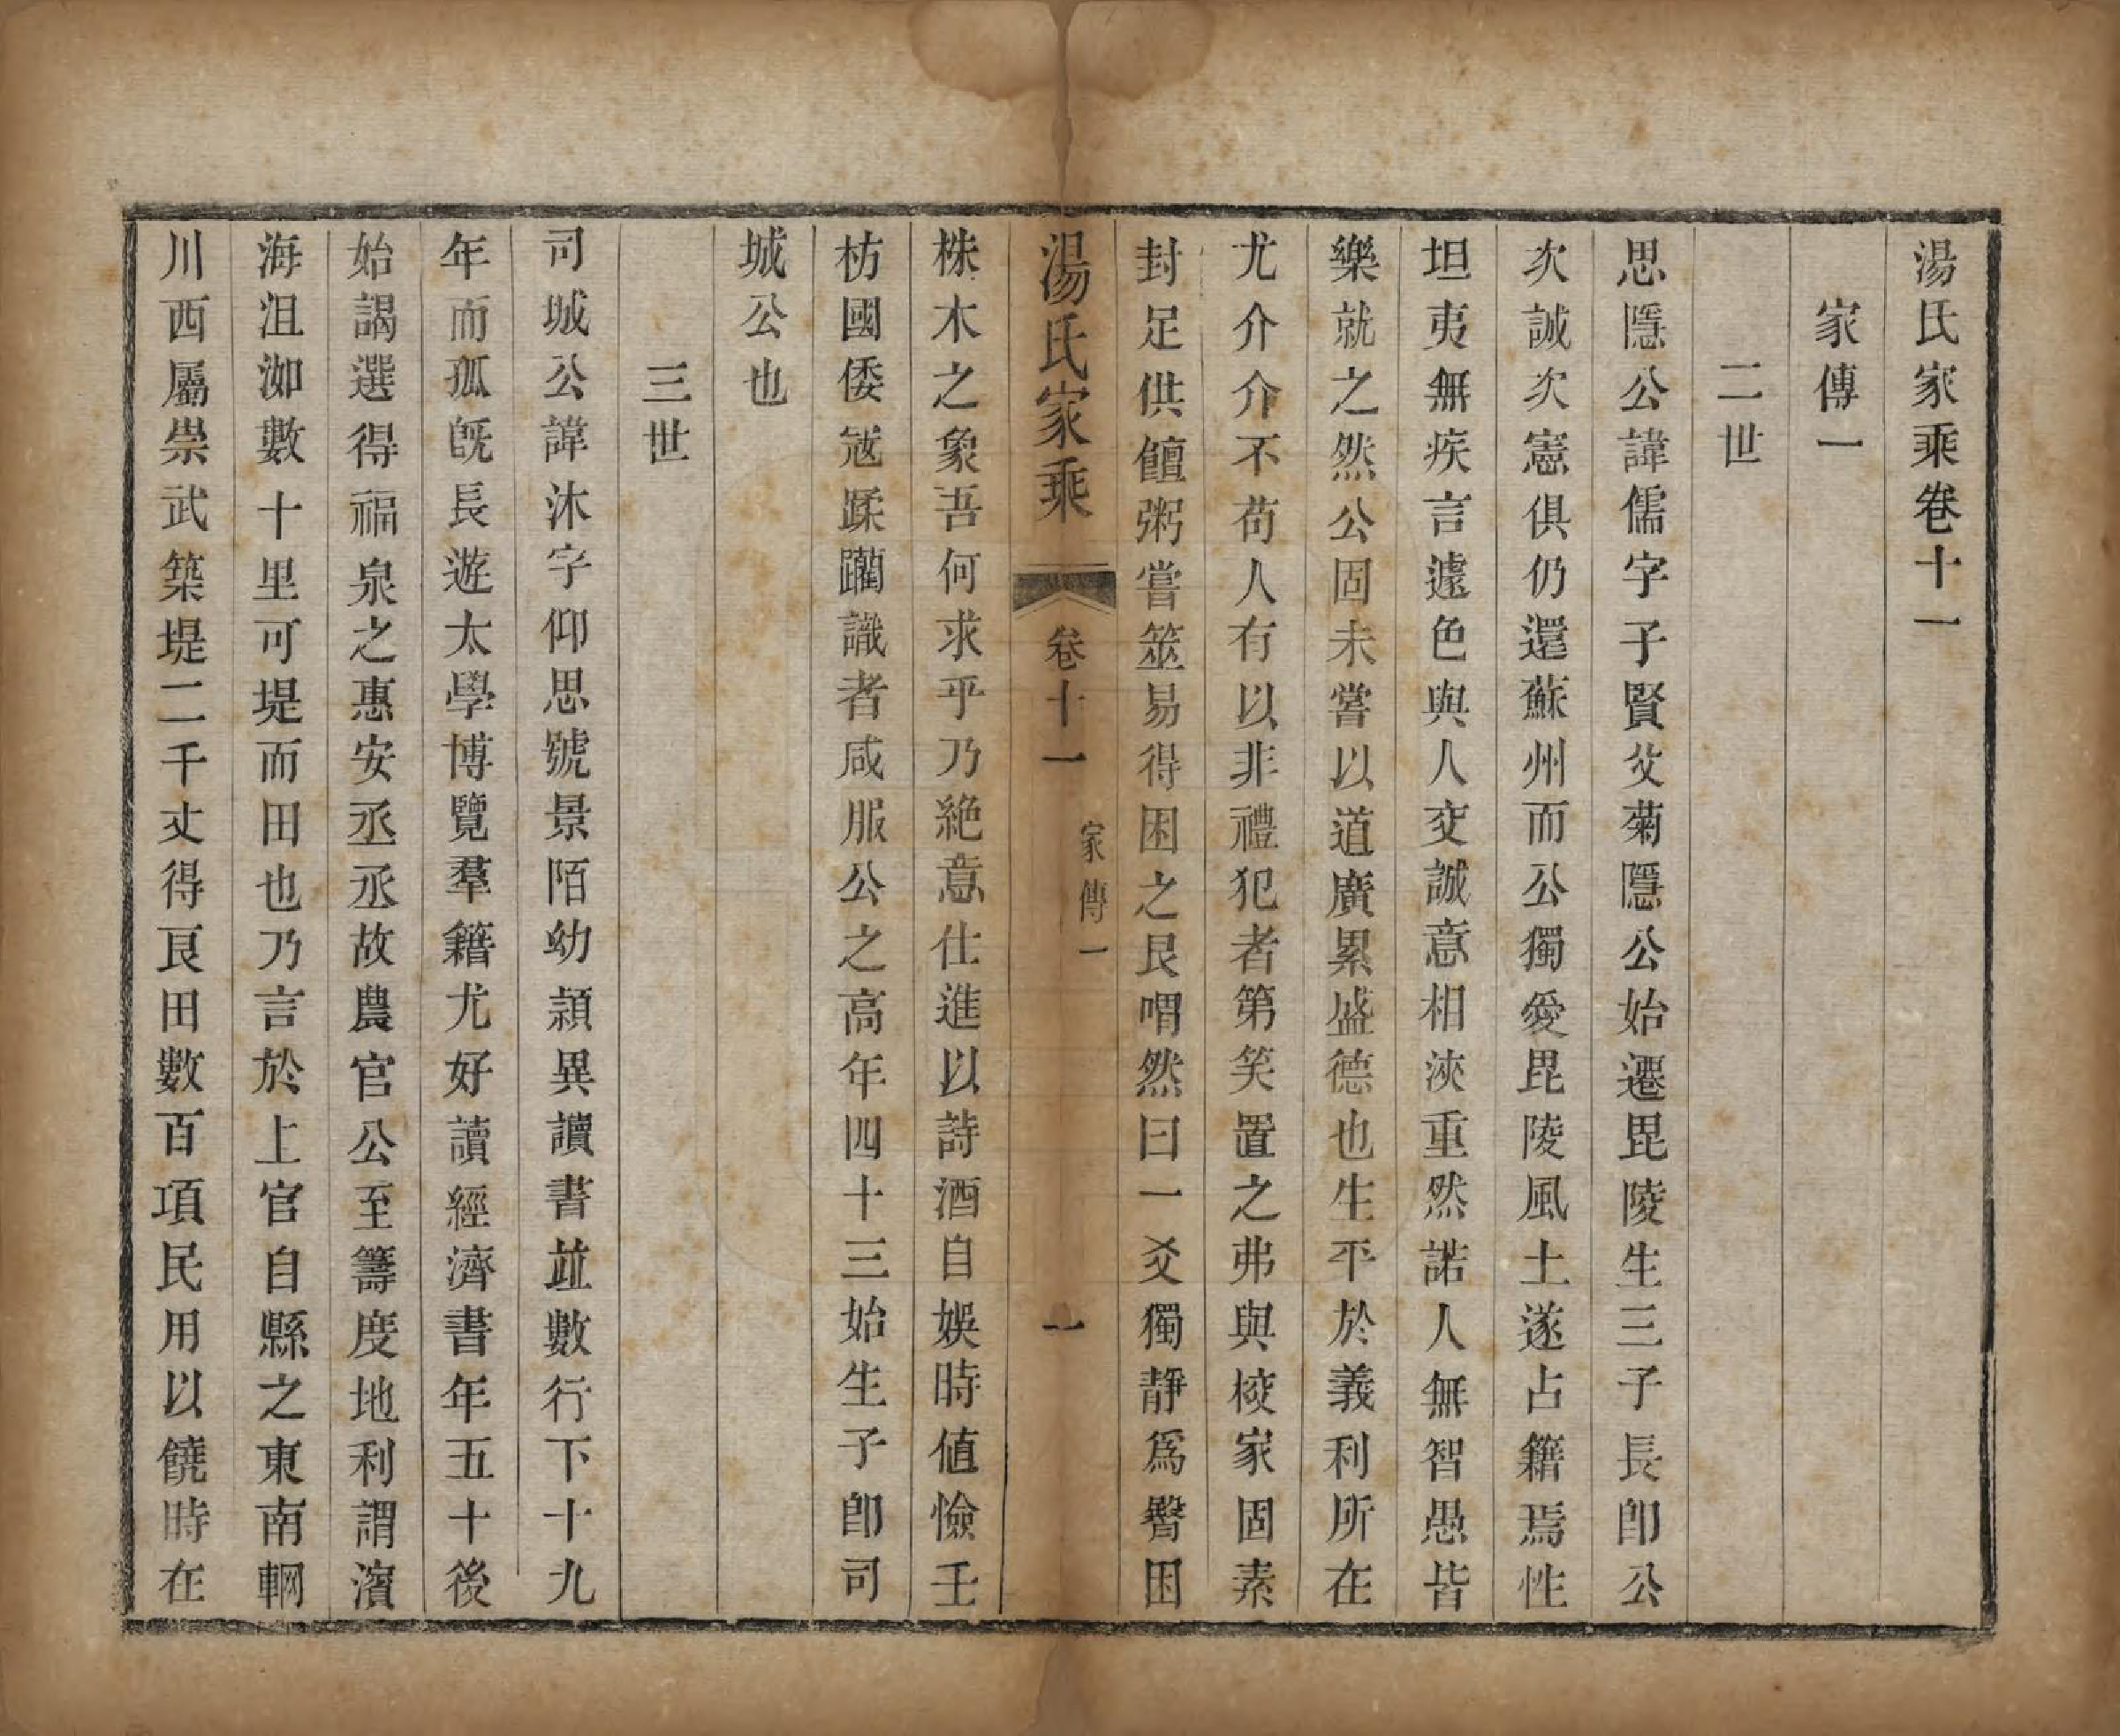 湯氏家乘卷十一
家傳一
二世
思隱公諱儒字子賢父菊隱公始遷毘陵生三子長卽公
次誠次憲俱仍還蘇州而公獨愛毘陵風土遂占籍焉性
坦夷無疾言遽色與人交誠意相浹重然諾人無智愚皆
樂就之然公固未嘗以道廣累盛德也生平於義利所在
尤介介不苟人有以非禮犯者第笑置之弗與校家固素
封足供饘粥嘗筮易得困之艮喟然曰一爻獨靜爲臀困
湯氏家乘
卷十一
家傳一
一
株木之象吾何求乎乃絕意仕進以詩酒自娛時值憸壬
枋國倭寇蹂躪識者咸服公之高年四十三始生子卽司
城公也
三世
司城公諱沐字仰思號景陌幼穎異讀書並數行下十九
年而孤旣長遊太學博覽羣籍尤好讀經濟書年五十後
始謁選得福泉之惠安丞丞故農官公至籌度地利謂濱
海沮洳數十里可堤而田也乃言於上官自縣之東南輞
川西屬崇武築堤二千丈得良田數百項民用以饒時在